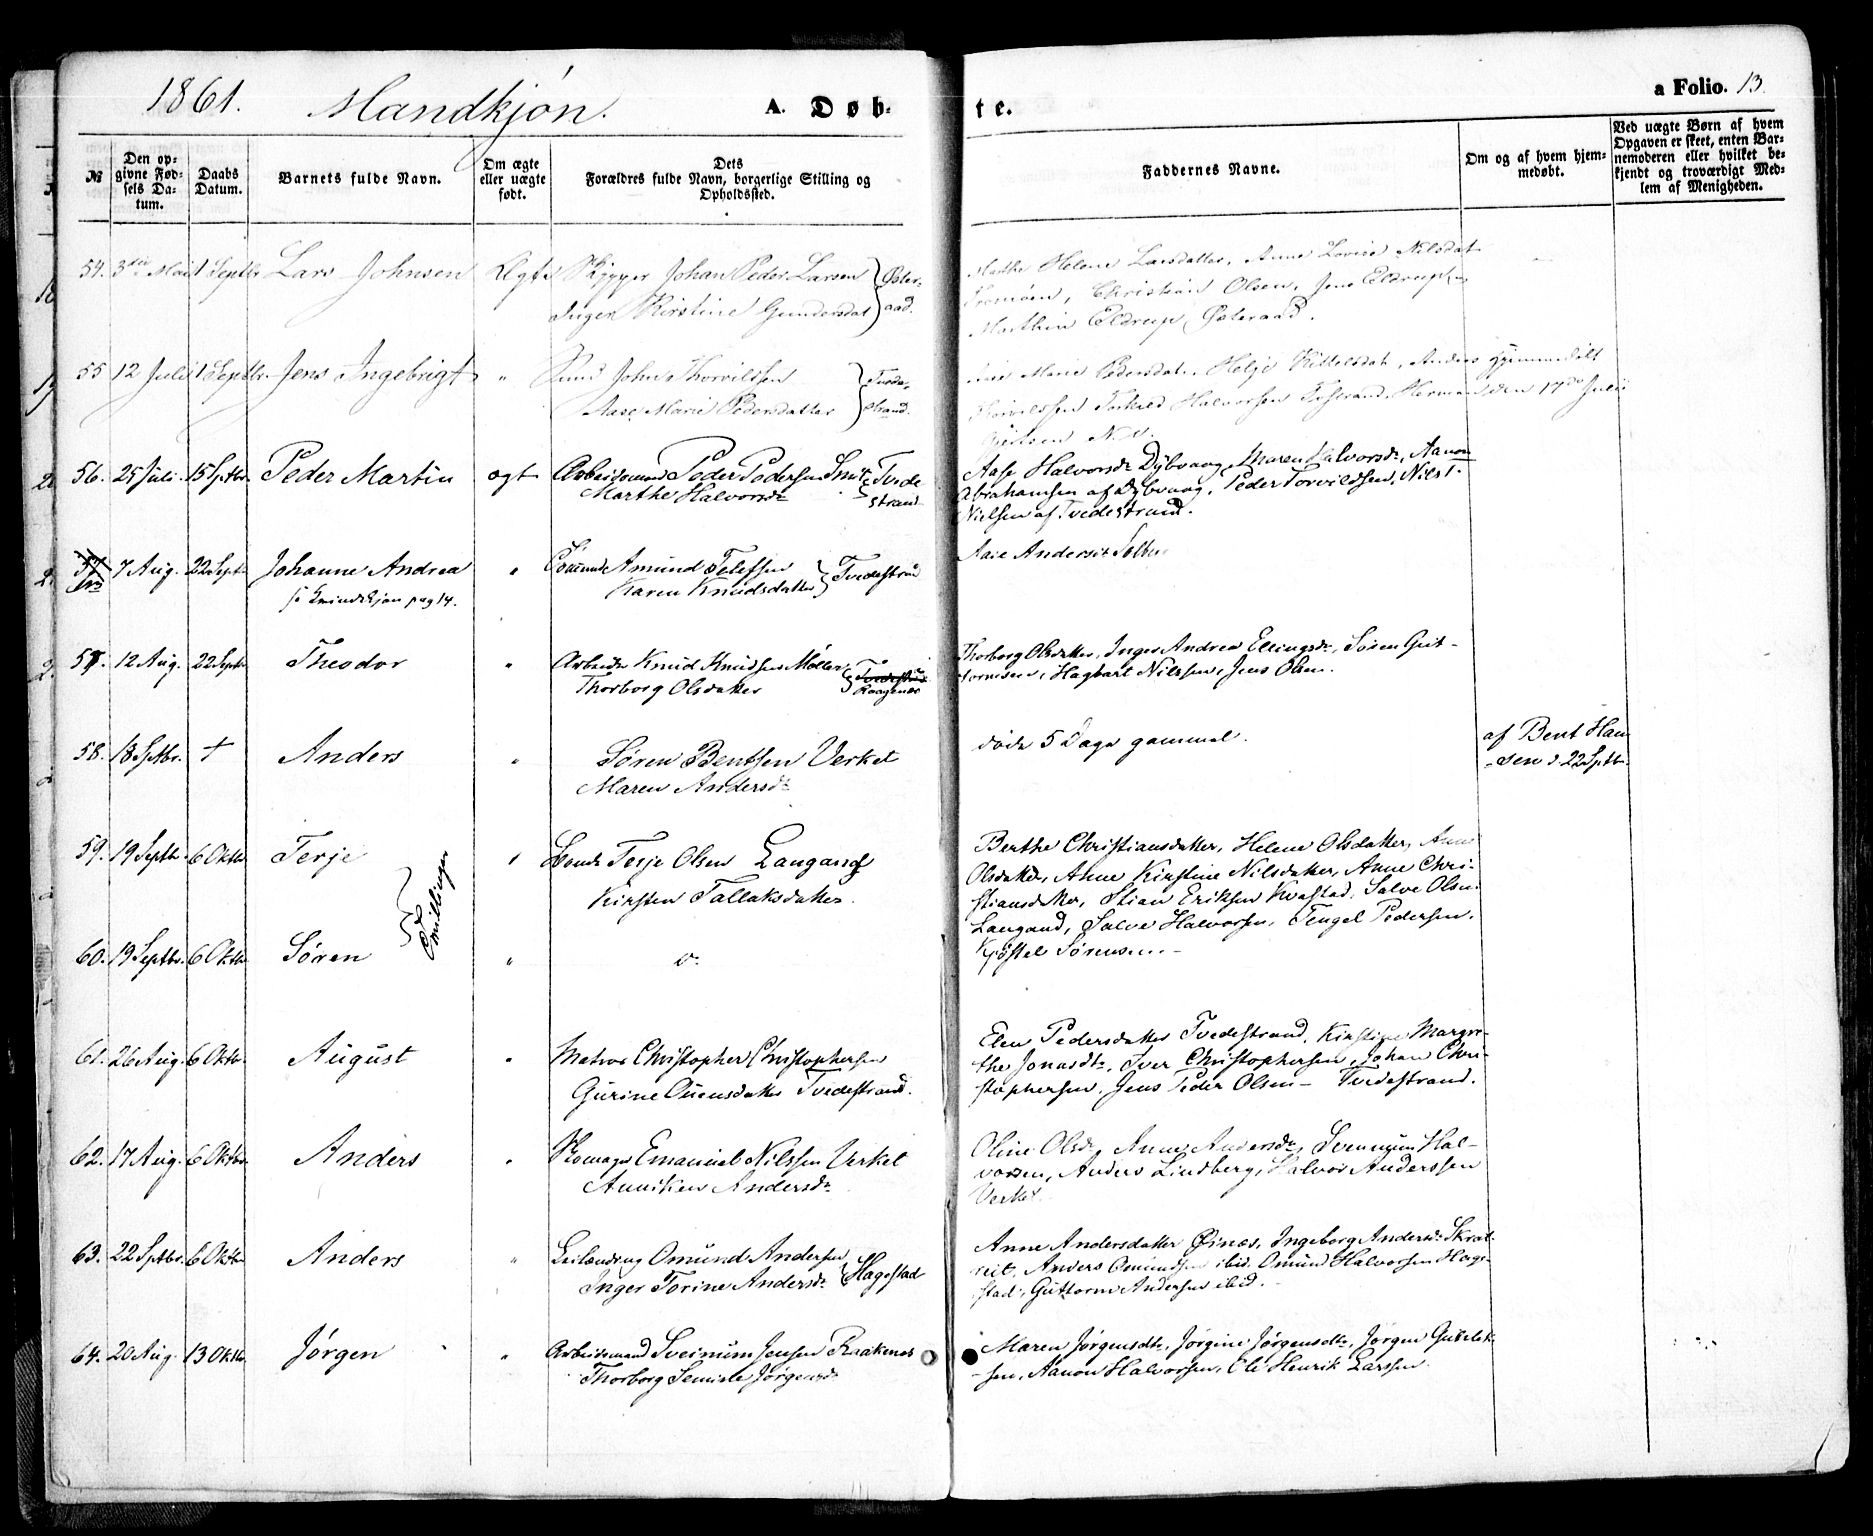 1861. Mandkjøn. A. Døb-
te. a Folio. 13.
№
Den op-
givne Fød-
sels Da-
tum.
Daabs
Datum.
Barnets fulde Navn.
Om ægte
eller uægte
født.
Dets
Forældres fulde Navn, borgerlige Stilling og
Opholdssted.
Faddernes Navne.
Om og af hvem hjem-
medøbt.
Ved uægte Børn af hvem
Opgaven er skeet, enten Bar-
nemoderen eller hvilket be-
kjendt og troværdigt Med-
lem af Menigheden.
54. 3die Mai 1 Septbr Lars Johnsen Ægte Skipper Johan Peder Larsen
Inger Kirstine Gundersdat
Øster-
aad.
Marthe Helene Larsdatter, Anne Lovise Nilsdat
Tromøen, Christian Olsen, Jens Eldrup
Marthin Eldrup, Østeraad.
55 12 Juli 1 Septbr. Jens Ingebrigt " John Thorvildsen
Aase Marie Pedersdatter
Tvede-
strand.
Marie Pedersdat., Helje Kittelsdat, Anders
Thorvildsen Halvorsen Herman
hjemmedøbt
den 17de Juli
56. 25 Juli. 15 Septbr. Peder Martin ægt Arbeidsmand Peder Pedersen
Marthe Halvorsdr
Tvede
strand
Aase Halvorsdr Dybvaag, Maren Halvorsdr, Aanon
Abrahamsen af Dybvaag, Peder Torvildsen, Nils T.
Nielsen af Tvedestrand.
57 7 Aug. 22 Septr Johanne Andrea " Amund Telefsen
Karen Knudsdatter
Tvedestrand
se Qvindekjøn pag 14.
57. 12 Aug. 22 Septr Theodor " Arbeidr Knud Knudsen Møller
Thorborg Olsdatter
Tvedestrand
Raagenes
Thorborg Olsdatter, Inger Andrea Ellingsdr, Søren Gut-
tormsen, Hagbart Nilssen, Jens Olsen.
58. 18 Septbr. † Anders " Søren Bentsen Verket
Maren Andersdr
døde 5 Dage gammel.
af Bent Han
-sen d. 22 Septbr.
59. 19 Septbr. 6 Oktbr Terje " Terje Olsen Langang
Kirsten Tallaksdatter.
Tvillinger
Berthe Christiansdatter, Helene Olsdatter, Ann
Olsdatter, Anne Kirstine Nilsdatter, Anne Chri-
stiansdatter, Stian Eriksen Kvastad, Salve Olsen
Langand, Salve Halvorsen, Tengel Pedersen.
Kjøstel Sørensen. -
60. 19 Septbr. 6 Oktbr Søren "
61. 26 Aug. 6 Oktbr. August " Matros Christopher Christophersen
Gurine Ouensdatter Tvedestrand.
Elen Pedersdatter Tvedestrand, Kirstine Margre-
the Jonasdtr, Iver Christophersen, Johan Chri-
stophersen, Jens Peder Olsen - Tvedestrand.
62. 17 Aug. 6 Oktbr. Anders " Skomager Emanuel Nilssen Verket
Anniken Andersdr
Oline Olsdr, Anne Andersdr, Svennum Hal-
vorsen, Anders Lindberg, Halvor Anderssen
Verket.
63. 22 Septbr. 6 Oktbr Anders " Leilænding Omund Andersen
Inger Torine Andersdr
Hagestad
Anne Andersdatter Øinæs, Ingeborg Andersdr Skrat-
reit. Anders Omundsen ibid. Omund Halvorsen Hage-
stad, Guttorm Andersen ibid.
64. 20 Aug. 13 Oktbr. Jørgen " Arbeidsmand Sveinum Jensen Raakenes
Thorborg Jørgensdr
Maren Jørgensdtr, Jørgine Jørgensdtr, Jørgen
-sen, Aanon Halvorsen, Ole Henrik Larssen.